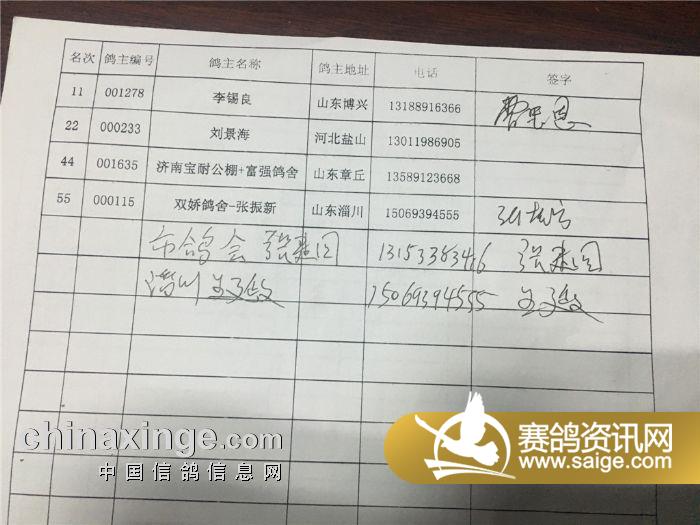 名次 鸽主编号 鸽主名称 鸽主地址 电话 签字
11 001278 李锡良 山东博兴 13188916366
22 000233 刘景海 河北盐山 13011986905
44 001635 济南宝耐公棚+富强鸽舍 山东章丘 13589123668
55 000115 双娇鸽舍-张振新 山东淄川 15069394555
市鸽会 13153383466
15069394555
chinaxinge.com
中国信鸽信息网
赛鸽资讯网
www.saige.com